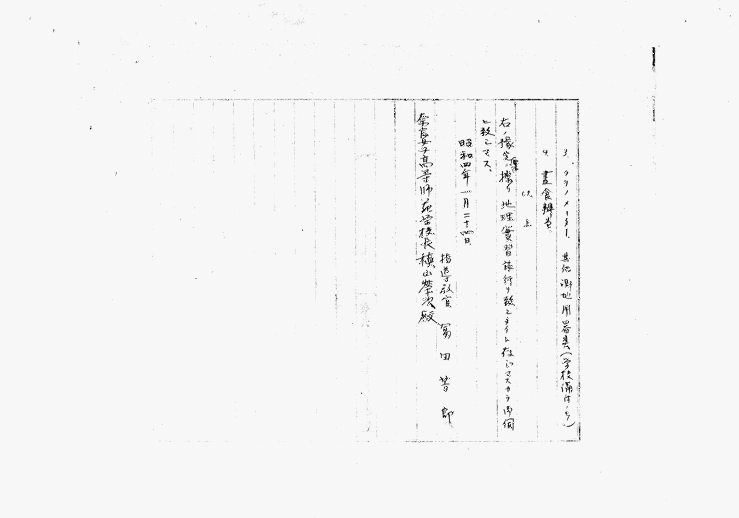 3. クリノメーター、其他測地用器具(学校備付ノモノ)
4. 晝食辨当
以上
右ノ豫定ニ據リ地理實習旅行ヲ致シタイト存ジマスカラ御伺
ヒ致シマス、
昭和四年一月二十四日
指導教官 冨田芳郎
奈良女子高等師範学校長 槇山榮次殿